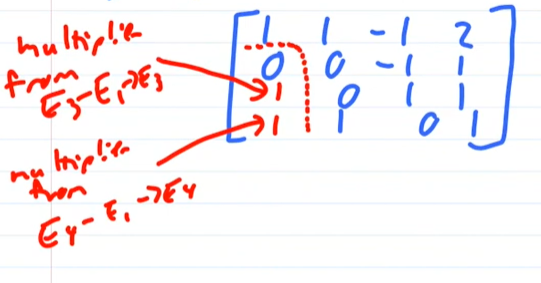 multiplier
from
E3-E1->E3
multiplier
from
E4-E1->E4
1 1 -1 2
0 0 -1 1
1 0 1 1
1 1 0 1